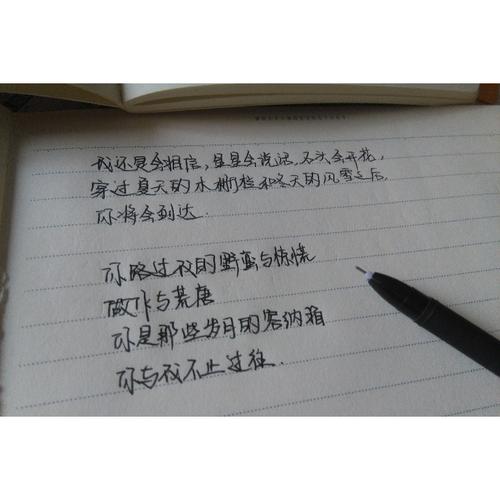 我还是会相信，星星会说话，石头会开花，
穿过夏天的木栅栏和冬天的风雪之后，
你将会到达．
你路过我的野蛮与惊慌
做作与荒唐
你是那些岁月的容纳箱
你与我不止过往．